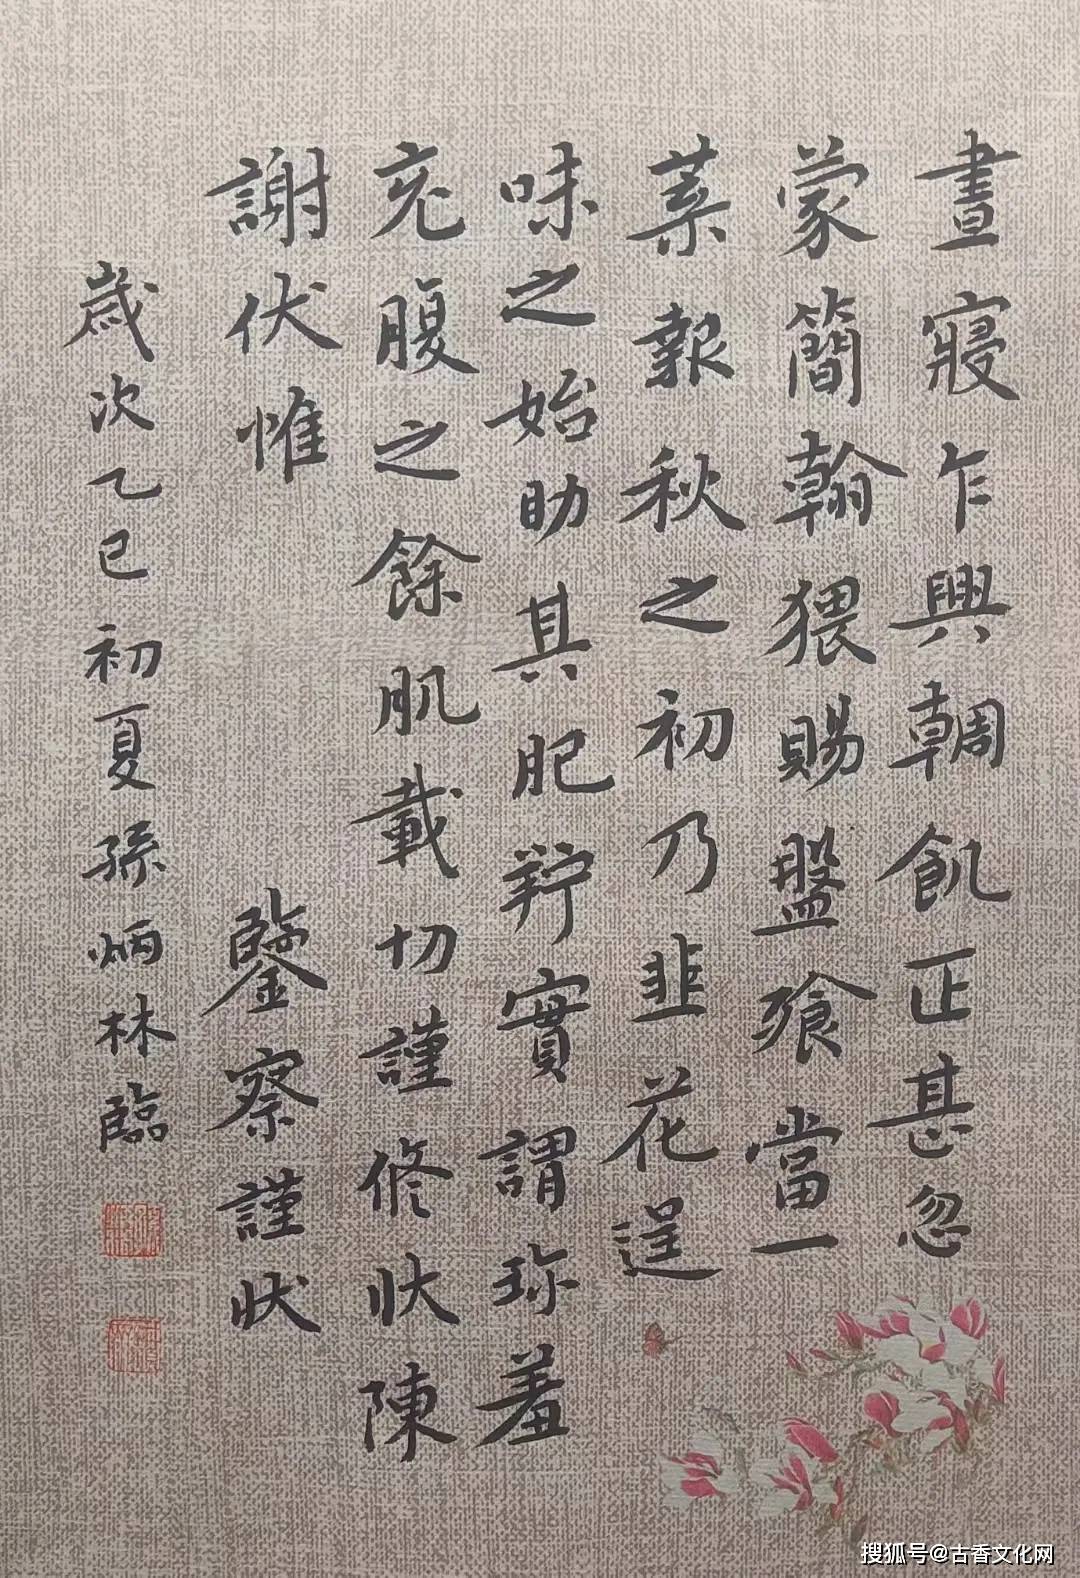 晝寢乍興輖飢正甚忽
蒙簡翰猥賜盤飧當一
葉報秋之初乃韭花逞
味之始助其肥羜實謂珍羞
充腹之餘肌載切謹修狀陳
謝伏惟
鑒察謹狀
歲次乙巳初夏孫炳林臨
搜狐号@古香文化网